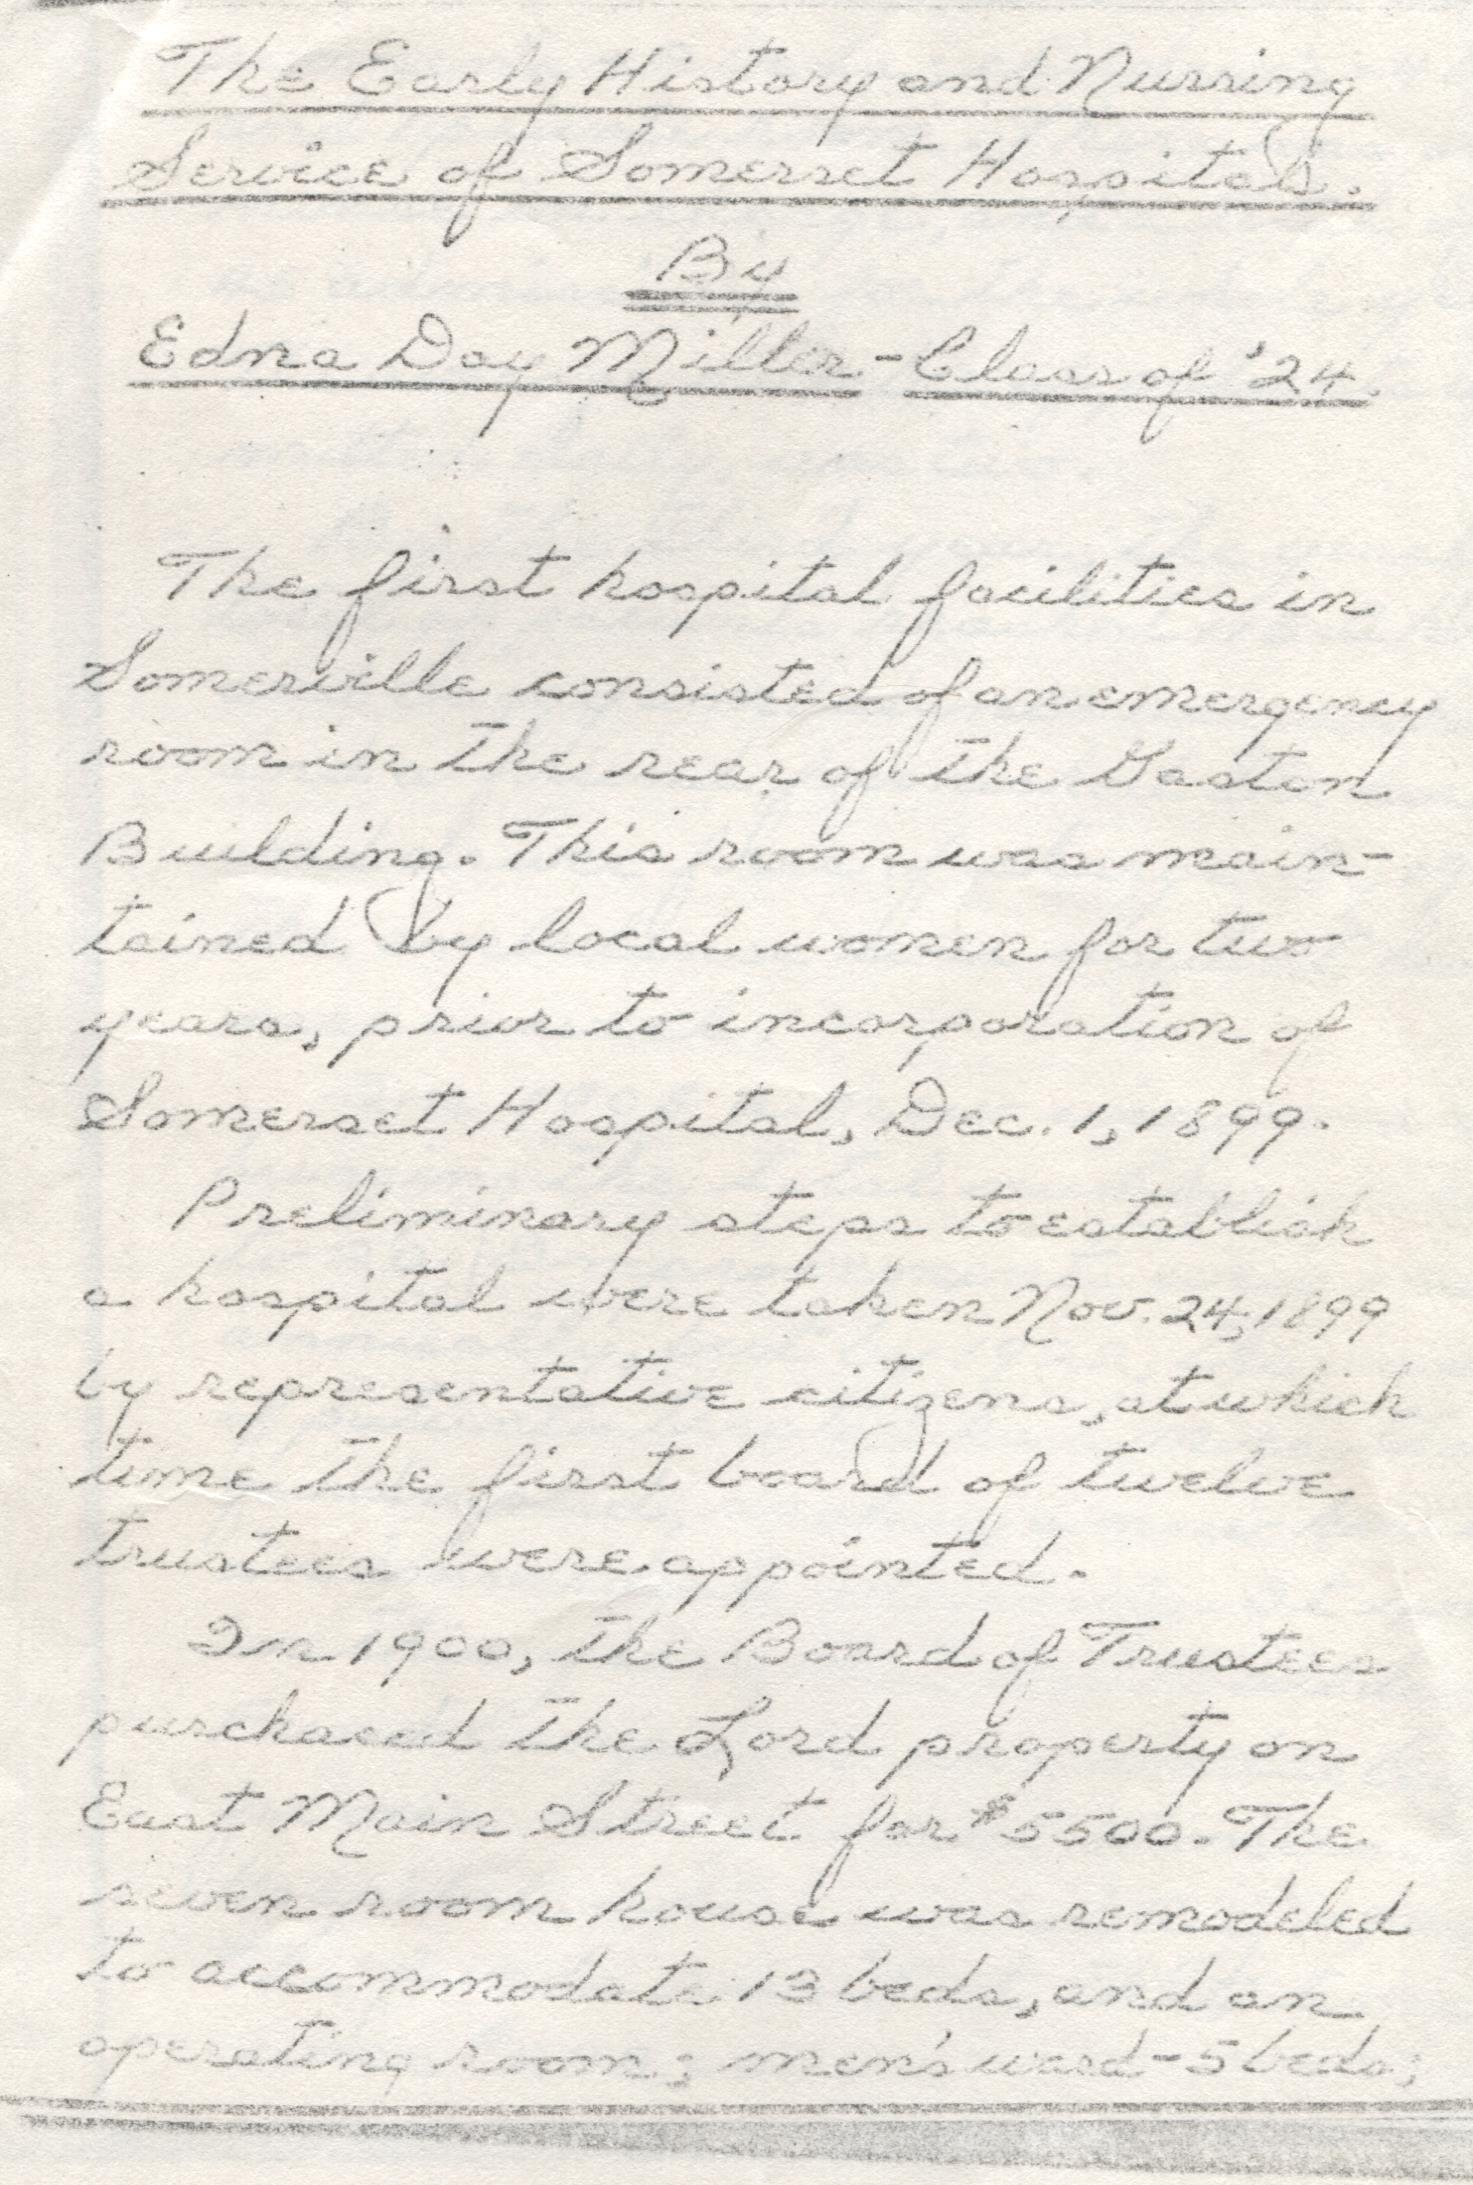 The Early History and Nursing
Service of Somerset Hospital.
By
Edna Day Miller - Class of '24.
The first hospital facilities in
Somerville consisted of an emergency
room in the rear of the Gaston
Building. This room was main-
tained by local women for two
years, prior to incorporation of
Somerset Hospital, Dec. 1, 1899.
Preliminary steps to establish
a hospital were taken Nov. 24, 1899
by representative citizens, at which
time the first board of twelve
trustees were appointed.
In 1900, the Board of Trustees
purchased the Lord property on
East Main Street for $5500. The
seven room house was remodeled
to accommodate 13 beds, and an
operating room; men's ward - 5 beds;